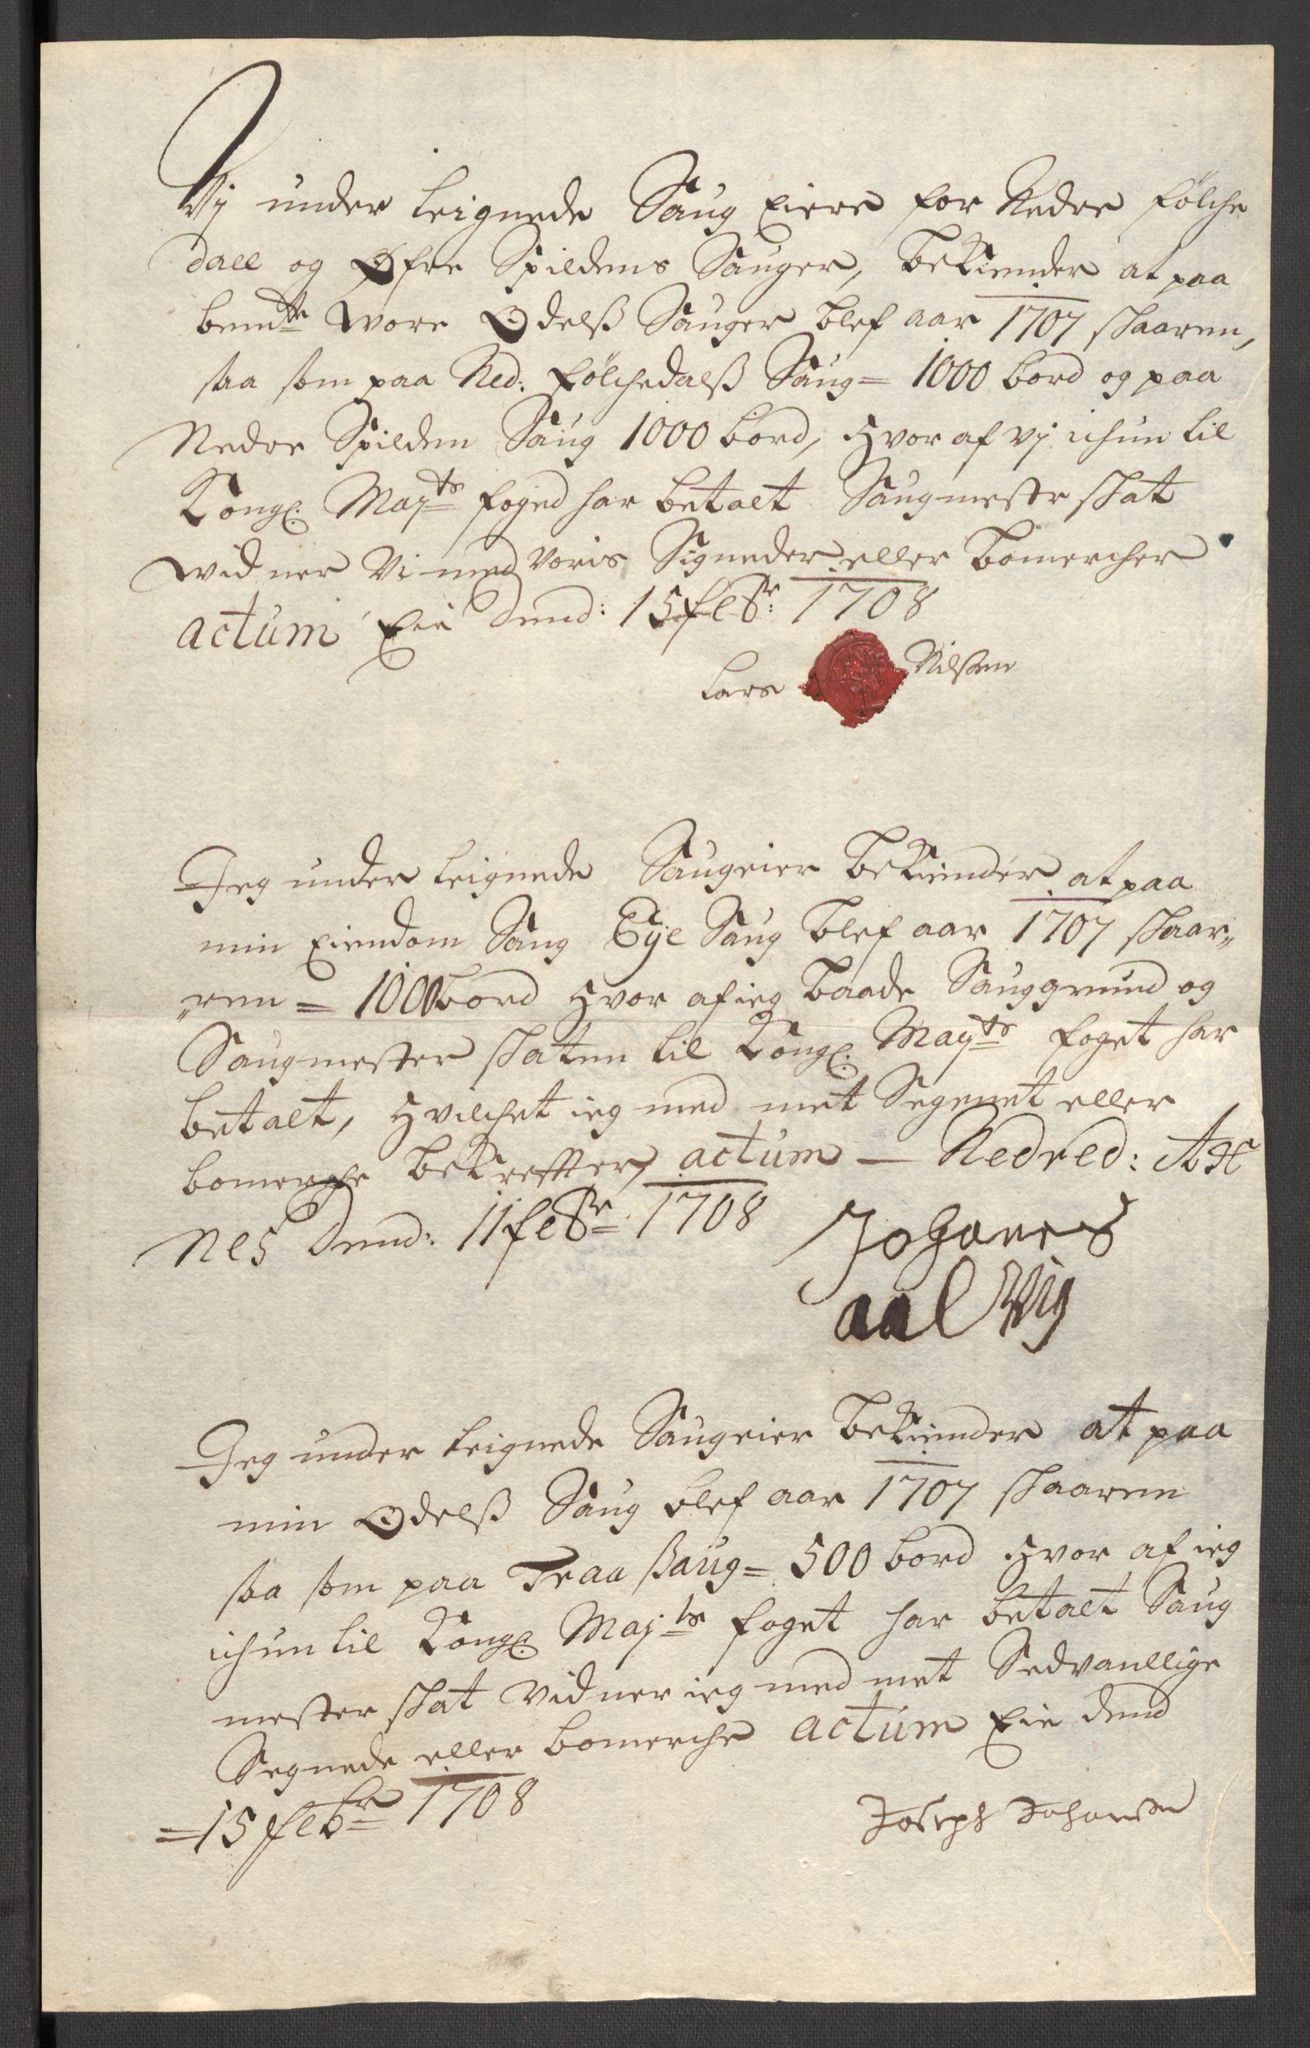 Vj under teignede Saug Eiere for Nedre Fölche
dall og Øfre Spildens Sauger, bekiender at paa
bemte wore Odelß Sauger blef aar 1707 skaaren,
saa som paa Ned: Fölchedalß Saug = 1000 bord og paa
Nedre Spilden Saug 1000 bord, hvor af vj ichun til
Kongl: Mayts foged har betalt Saugmestr skat
widner Vi med voris Signeder eller bomercher
actum Eie dend: 15 febr: 1708
Lars Nilsen
Jeg under teignede Saugeier bekiender at paa
min Eiendom Saug Eye Saug blef aar 1707 skaar„
„ren = 1000 bord hvor af ieg baade Sauggrund og
Saugmester skaten til Kongl: Mayts foget har
betalt, hvilchet ieg med met Segenet eller
bomerche bekreffter, actum — Nedred: AH
Nes dend: 11 febr 1708
Johanes
aalWig
Jeg under teignede Saugeier bekiender at paa
min Odelß Saug blef aar 1707 skaaren
saa som paa Traa ßaug = 500 bord hvor af ieg
ichun til Kongl: Majts foget har betalt Saug
mester skat vidner ieg med met Sedvanllige
Segnede eller bomerche actum Eie dend
= 15 febr 1708
Joseph Johansen